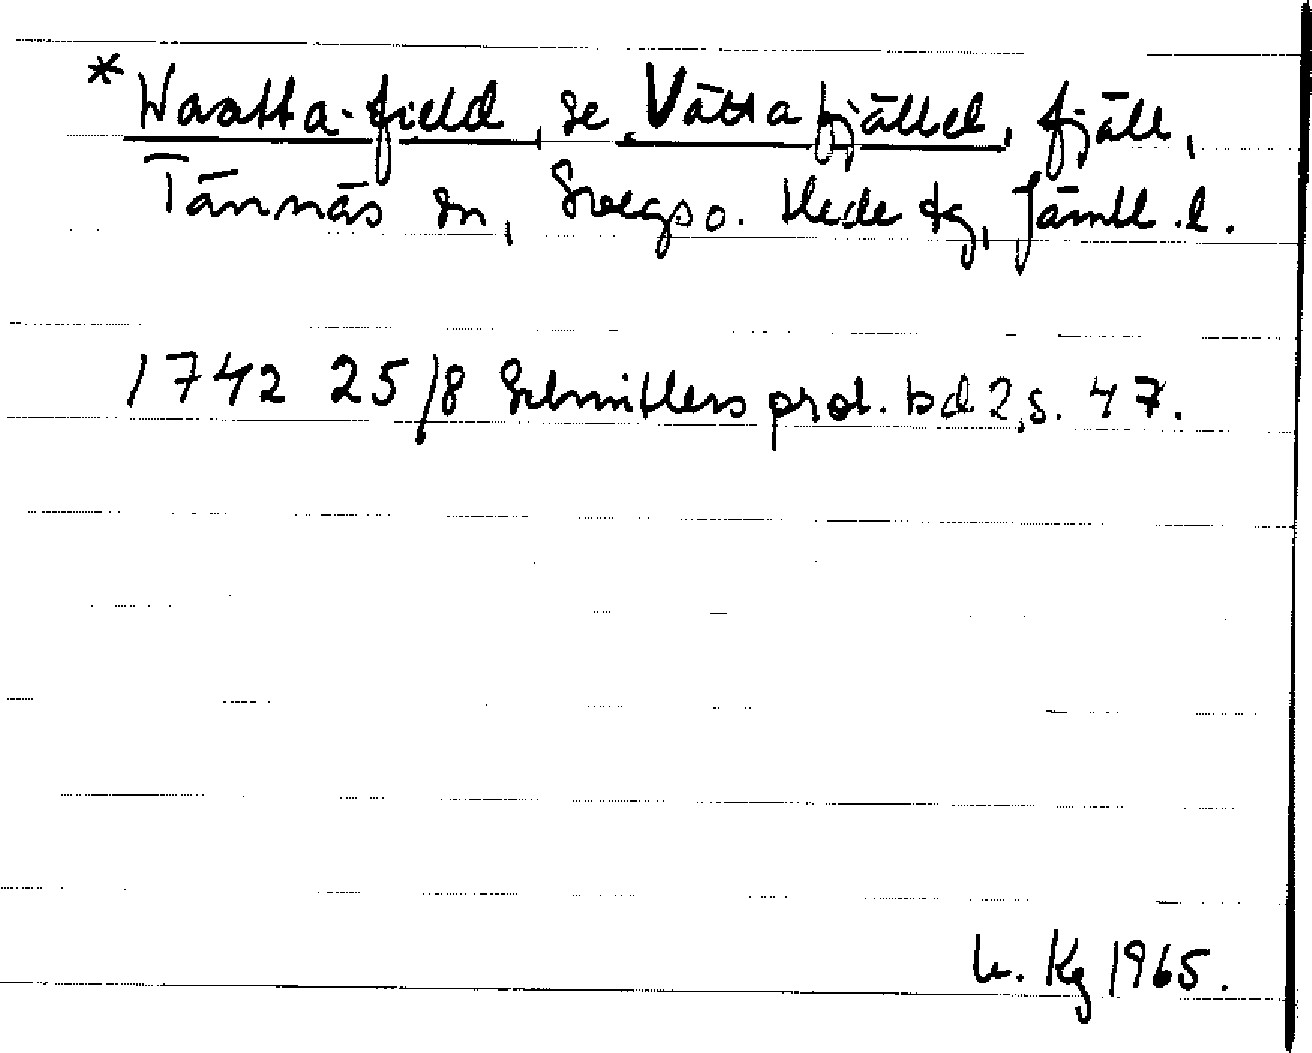 * Waatta-field, se Vättafjället, fjäll,
Tännäs sn, Svegs o. Hede tg, Jämtl. l.
1742 25/8 Schnitlers prot. bd 2, s. 47.
h. Kg 1965.